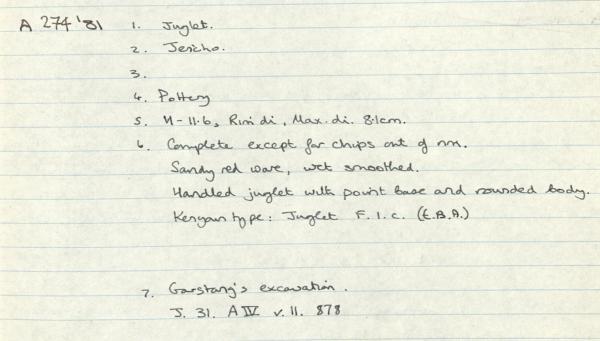 A 274 '81 1. Juglet.
2. Jericho.
3.
4. Pottery
5. H-11.6, Rim di, Max. di. 8.1cm.
6. Complete except for chips out of rim.
Sandy red ware, wet smoothed.
Handled juglet with point base and rounded body.
Kenyon type: Juglet F.1.c. (E.B.A.)
7. Garstang's excavation.
J. 31. A IV v. 11. 878